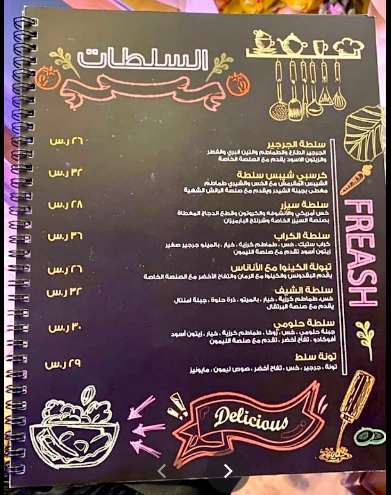 السلطات
سلطة الجرجير ٢٦ ر.س
الجرجير الطازج والطماطم والتين البري والفطر
والزيتون الاسود يقدم مع الصلصة الخاصة
كرسبي شيبس سلطة ٣٢ ر.س
الشيبس المقرمش مع الخس والشيري طماطم
مغطى بجبنة الشيدر ويقدم مع صلصة الرانش الشهية
سلطة سيزر ٢٨ ر.س
خس أمريكي والأنشوفه والكروتون وقطع الدجاج المغطاة
بصلصة السيزر الخاصة وشرائح البارميزان
سلطة الكراب ٣٦ ر.س
كراب ستيك ، خس ، طماطم كرزية ، خيار ، بالمينو جرجير صغير
زيتون أسود تقدم مع صلصة الليمون
تبولة الكينوا مع الأناناس ٢٦ ر.س
يقدم البقدونس والكينوا مع الرمان والتفاح الأخضر مع الصلصة الخاصة
سلطة الشيف ٣٢ ر.س
خس، طماطم كرزية ، خيار ، بالميتو ، ذرة حلوة ، جبنة امنتال
يقدم مع صلصة البرتقال
سلطة حلومي ٣٠ ر.س
جبنة حلومي ، خس ، روكا ، طماطم كرزية ، خيار ، زيتون أسود
أفوكادو ، تفاح أخضر ، تقدم مع صلصة الليمون
تونة سلط ٢٩ ر.س
تونة ، جرجير ، خس ، تفاح أخضر ، صوص ليمون ، مايونيز
FREASH
Delicious